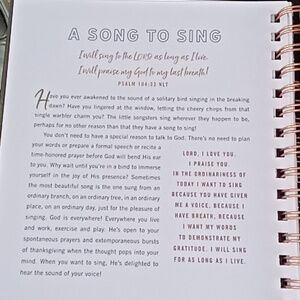 A SONG TO SING
I will sing to the LORD as long as I live.
I will praise my God to my last breath!
PSALM 104:33 NLT
Have you ever awakened to the sound of a solitary bird singing in the breaking
dawn? Have you lingered at the window, letting the cheery chirps from that
single warbler charm you? The little songsters sing wherever they happen to be,
perhaps for no other reason than that they have a song to sing!
You don't need to have a special reason to talk to God. There's no need to plan
your words or prepare a formal speech or recite a
time-honored prayer before God will bend His ear
to you. Why wait until you're in a bind to immerse
yourself in the joy of His presence? Sometimes
the most beautiful song is the one sung from an
ordinary branch, on an ordinary tree, in an ordinary
place, on an ordinary day, just for the pleasure of
singing. God is everywhere! Everywhere you live
and work, exercise and play. He's open to your
spontaneous prayers and extemporaneous bursts
of thanksgiving when the thought pops into your
mind. When you want to sing, He's delighted to
hear the sound of your voice!
LORD, I LOVE YOU.
I PRAISE YOU
IN THE ORDINARINESS OF
TODAY I WANT TO SING
BECAUSE YOU HAVE GIVEN
ME A VOICE, BECAUSE I
HAVE BREATH, BECAUSE
I WANT MY WORDS
TO DEMONSTRATE MY
GRATITUDE. I WILL SING
FOR AS LONG AS I LIVE.